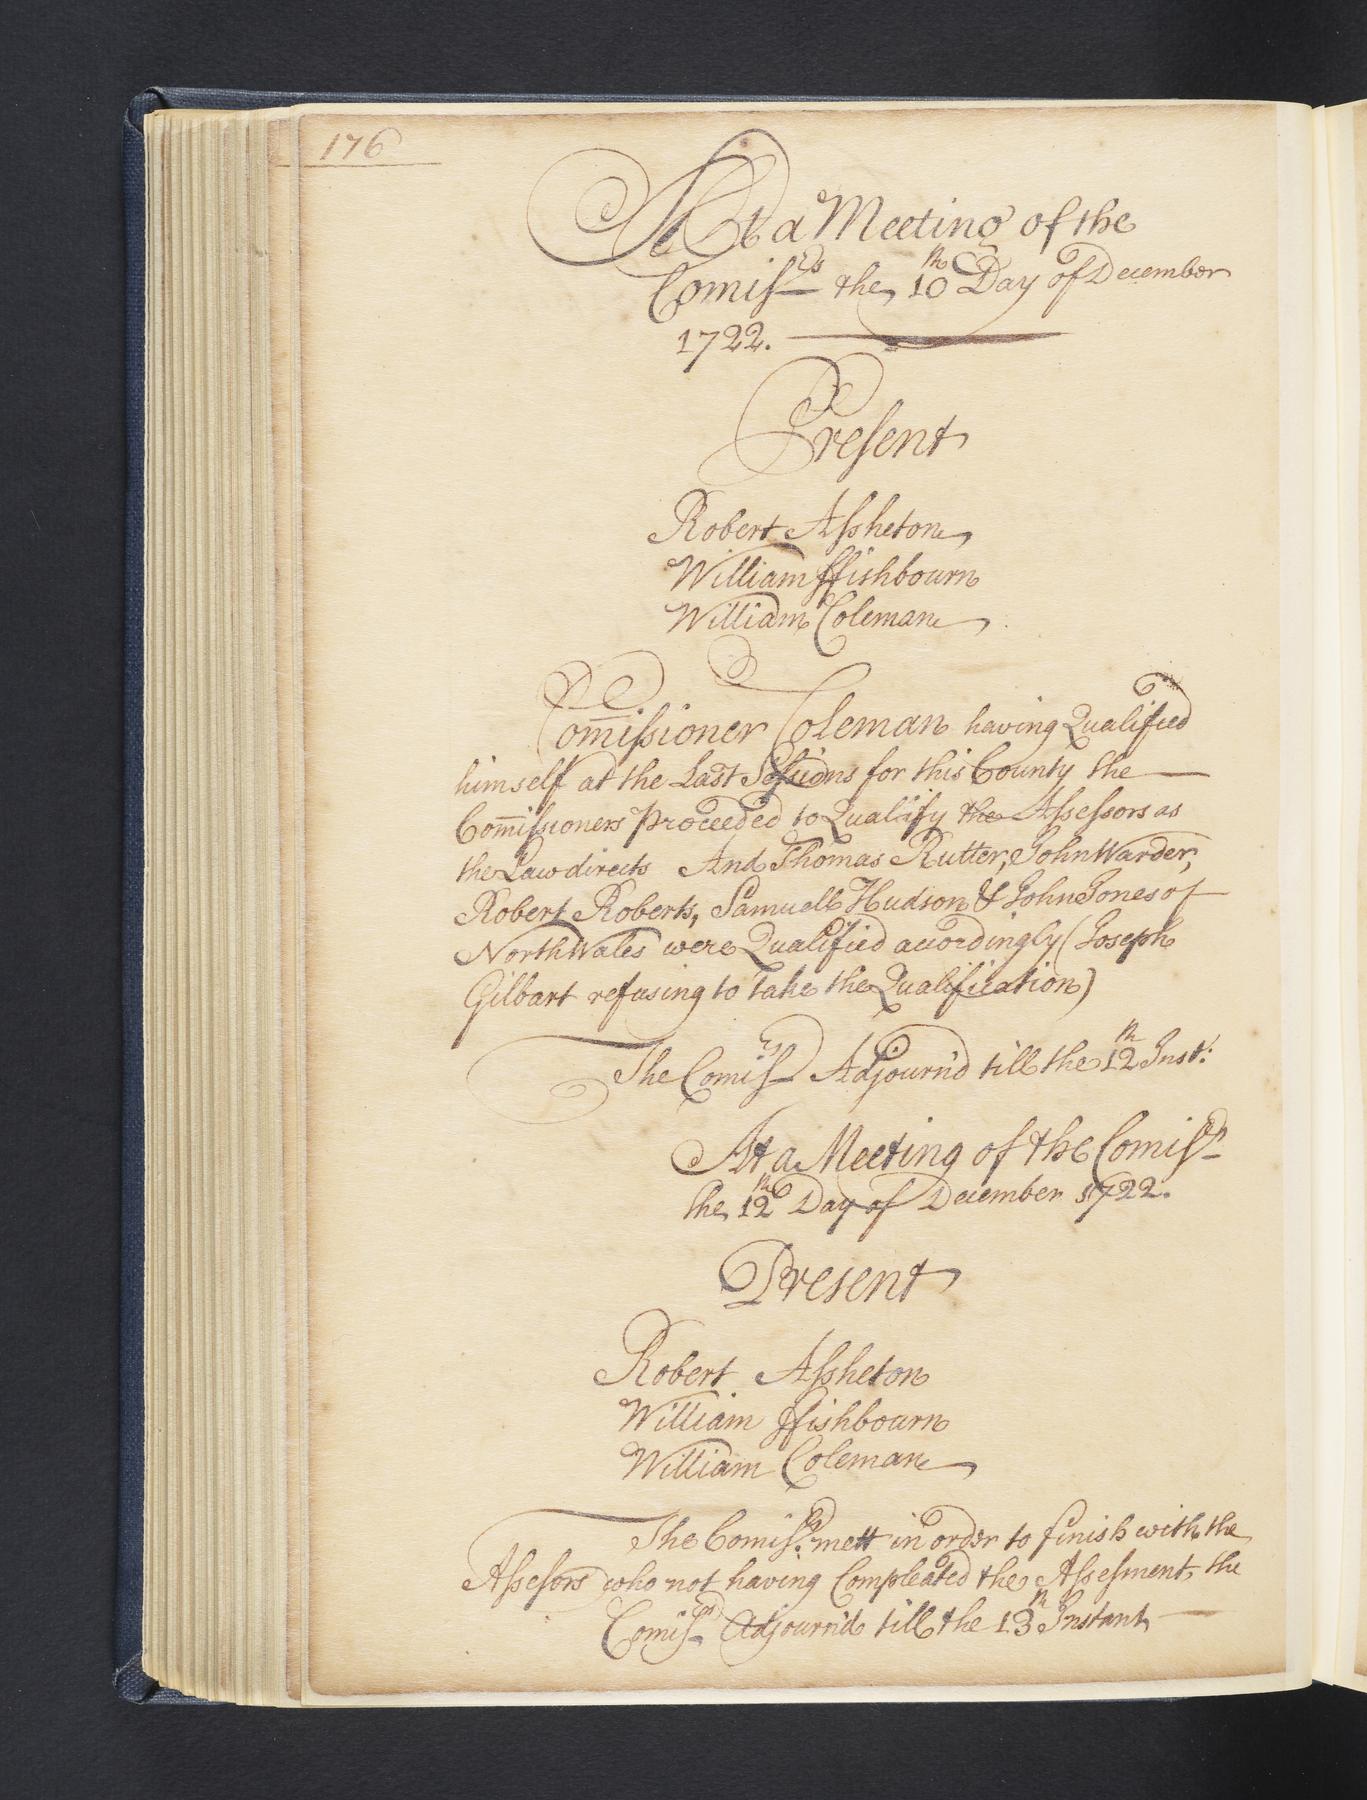 176
At a Meeting of the
Comiſs.rs the 10th Day of December
1722.
Preſent
Robert Aſsheton
William ffishbourn
William Coleman
Com̅iſsioner Coleman having Qualified
himself at the Last Seſsions for this County the
Com̅iſsioners Proceeded to Qualify the Aſseſsors as
the Law directs And Thomas Rutter, John Warder,
Robert Roberts, Samuell Hudson & John Jones of
North Wales were Qualified accordingly (Joseph
Gilbart refusing to take the Qualification)
The Comiſsrs Adjourn'd till the 12th Inst:
At a Meeting of the Comiſsrs
the 12th Day of December 1722.
Present
Robert Aſsheton
William ffishbourn
William Coleman
The Comiſsrs mett in order to finish with the
Aſseſsors who not having Compleated the Aſseſsment, the
Comiſsrs Adjourn'd till the 13th Instant